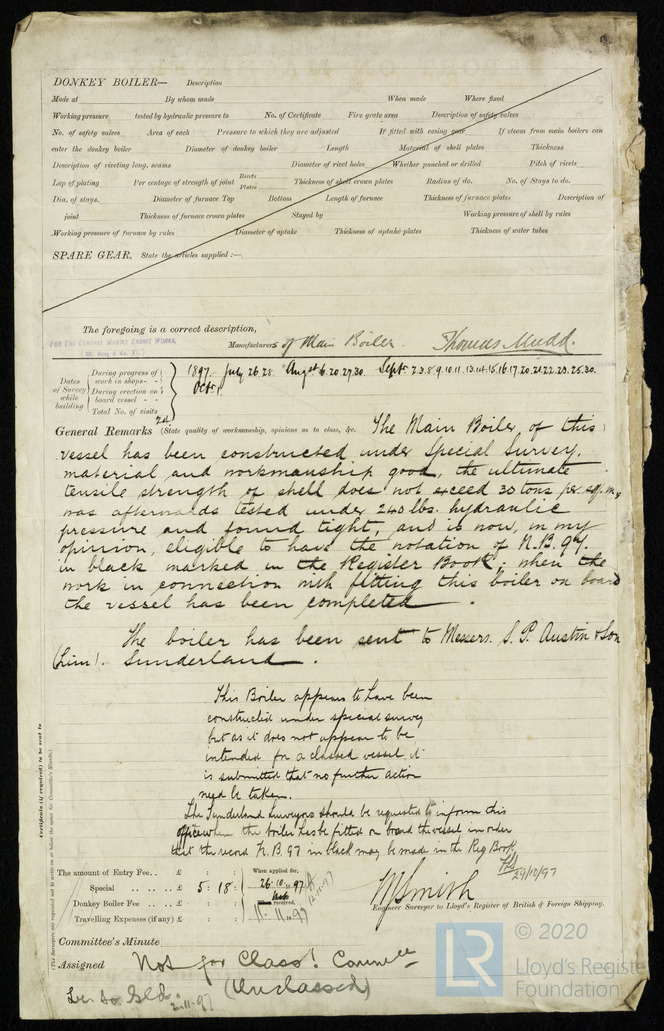 DONKEY BOILER— Description
Made at By whom made When made Where fixed
Working pressure tested by hydraulic pressure to No. of Certificate Fire grate area Description of safety valves
No. of safety valves Area of each Pressure to which they are adjusted If fitted with easing gear If steam from main boilers can
enter the donkey boiler Diameter of donkey boiler Length Material of shell plates Thickness
Description of riveting long. seams Diameter of rivet holes Whether punched or drilled Pitch of rivets
Lap of plating Per centage of strength of joint Rivets Plates Thickness of shell crown plates Radius of do. No. of Stays to do.
Dia. of stays. Diameter of furnace Top Bottom Length of furnace Thickness of furnace plates Description of
joint Thickness of furnace crown plates Stayed by Working pressure of shell by rules
Working pressure of furnace by rules Diameter of uptake Thickness of uptake plates Thickness of water tubes
SPARE GEAR. State the articles supplied :—
The foregoing is a correct description,
FOR THE CENTRAL MARINE ENGINE WORKS,
Manufacturers of Main Boiler. Thomas Mudd.
Dates of Survey while building
During progress of work in shops - - 1897. July 26.28. Augst 6.20.27.30. Sept. 2.3.8.9.10.11.13.14.15.16.17.20.21.22.23.25.30.
During erection on board vessel - - Oct. 1.
Total No. of visits 24
General Remarks (State quality of workmanship, opinions as to class, &c. The Main Boiler of this
vessel has been constructed under Special Survey,
material and workmanship good, the ultimate
tensile strength of shell does not exceed 30 tons per sq. in,
was afterwards tested under 240 lbs. hydraulic
pressure and found tight, and is now, in my
opinion, eligible to have the notation of N.B.97.
in black marked in the Register Book; when the
work in connection with fitting this boiler on board
the vessel has been completed.
The boiler has been sent to Messers. S. P. Austin & Son
(Lim). Sunderland.
This Boiler appears to have been
constructed under special survey
but as it does not appear to be
intended for a classed vessel it
is submitted that no further action
need be taken.
The Sunderland Surveyors should be requested to inform this
office when the boiler has be fitted on board the vessel in order
that the record N.B.97 in black may be made in the Reg Book
29/10/97
Certificate (if required) to be sent to
(The Surveyors are requested not to write on or below the space for Committee's Minute.)
The amount of Entry Fee.. £ : : When applied for,
Special .. .. £ 5 : 18 : 26.10.97
Donkey Boiler Fee .. .. £ : : When received,
Travelling Expenses (if any) £ : : 11.11.97
W Smith
Engineer Surveyor to Lloyd's Register of British & Foreign Shipping.
Committee's Minute
Assigned Not for Class
(Unclassed)
2.11.97
LR © 2020
Lloyd's Register
Foundation